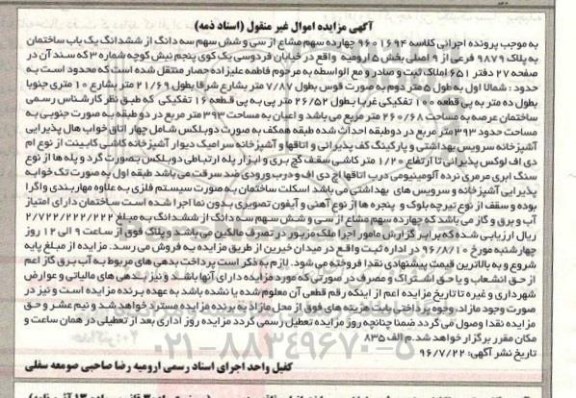 آگهی مزایده اموال غیر منقول (اسناد ذمه)
به موجب پرونده اجرائی کلاسه 9601694 چهارده سهم مشاع از سی و شش سهم سه دانگ از ششدانگ یک باب ساختمان
به پلاک 9879 فرعی از 9 اصلی بخش 5 ارومیه واقع در خیابان فردوسی یک کوی پنجم نبش کوچه شماره 3 که سند آن در
صفحه 27 دفتر 651 املاک ثبت و صادر و مع الواسطه به مرحوم فاطمه علیزاده حصار منتقل شده است که محدود است به
حدود : شمالا اول به طول 5 متر دوم به صورت قوس بطول 7/87 متر بشارع شرقا بطول 21/69 متر بشارع 10 متری جنوبا
بطول ده متر به پی قطعه 100 تفکیکی غربا بطول 26/52 متر پی به پی قطعه 16 تفکیکی که طبق نظر کارشناس رسمی
ساختمان عرصه به مساحت 260/68 متر مربع می باشد و اعیان به مساحت 393 متر مربع در دو طبقه به صورت جنوبی به
مساحت حدود 393 متر مربع در دوطبقه احداث شده طبقه همکف به صورت دوبلکس شامل چهار اتاق خواب هال پذیرایی
آشپزخانه سرویس بهداشتی و پارکینگ کف پذیرائی و اتاقها و آشپزخانه سرامیک دیوار آشپزخانه کاشی کابینت از نوع ام
دی اف لوکس پذیرائی تا ارتفاع 1/20 متر کاشی سقف گچ بری و ابزار پله ارتباطی دوبلکس بصورت گرد و پله ها از نوع
سنگ ابری مرمری نرده آلومینیومی درب اتاقها اچ دی اف و درب ورودی ضد سرقت می باشد طبقه اول به صورت تک خوابه
پذیرایی آشپزخانه و سرویس های بهداشتی می باشد اسکلت ساختمان به صورت سیستم فلزی به علاوه مهاربندی واگرا
بوده و سقف از نوع تیرچه بلوک و پنجره ها از نوع آهنی و آیفون تصویری بدون نما اجرا شده است ساختمان دارای امتیاز
آب و برق و گاز می باشد که چهارده سهم مشاع از سی و شش سهم سه دانگ از ششدانگ به مبلغ 2/722/222/222
ریال ارزیابی شده که برابر گزارش مامور اجرا ملک مزبور در تصرف مالکین می باشد و پلاک فوق از ساعت 9 الی 12 روز
چهارشنبه مورخ 96/8/10 در اداره ثبت واقع در میدان خیبر از طریق مزایده به فروش می رسد. مزایده از مبلغ پایه
شروع و به بالاترین قیمت پیشنهادی نقدا فروخته می شود. لازم به ذکر است پرداخت بدهی های مربوط به آب برق گاز اعم
از حق انشعاب و یا حق اشتراک و مصرف در صورتی که مورد مزایده دارای آنها باشد و نیز بدهی های مالیاتی و عوارض
شهرداری و غیره تا تاریخ مزایده اعم از اینکه رقم قطعی آن معلوم شده یا نشده باشد به عهده برنده مزایده است و نیز در
صورت وجود مازاد، وجوه پرداختی بابت هزینه های فوق از محل مازاد به برنده مزایده مسترد خواهد شد و نیم عشر و حق
مزایده نقدا وصول می گردد ضمنا چنانچه روز مزایده تعطیل رسمی گردد مزایده روز اداری بعد از تعطیلی در همان ساعت و
مکان مقرر برگزار خواهد شد. م الف 835
تاریخ نشر آگهی: 96/7/22
کفیل واحد اجرای اسناد رسمی ارومیه رضا صاحبی صومعه سفلی
021-88349670-5